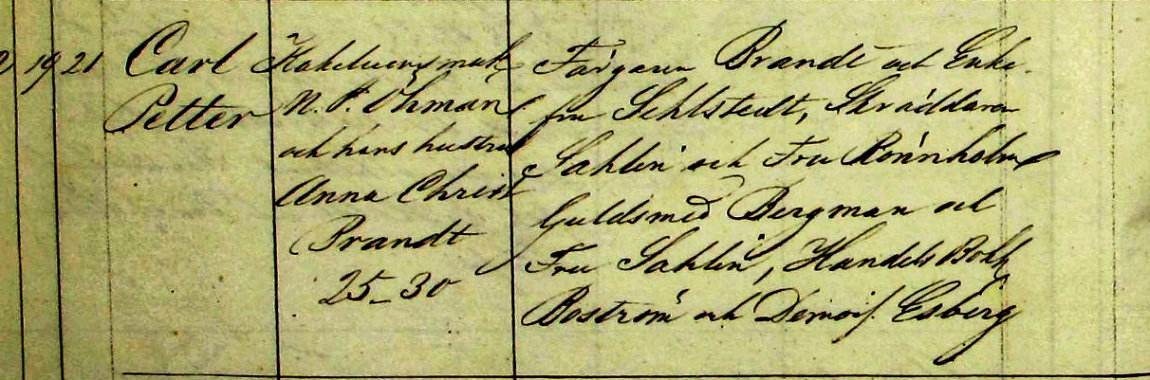 19 21
Carl
Petter
Kakelugnsmak
N. P. Öhman
och hans hustru
Anna Christ
Brandt
25-30
Färgaren Brandt och Enke-
fru Sehlstedt, Skräddaren
Sahlin och Fru Rönnholm
Guldsmed Bergman och
Fru Sahlin, Handels Bokh
Boström och Demois. Esberg